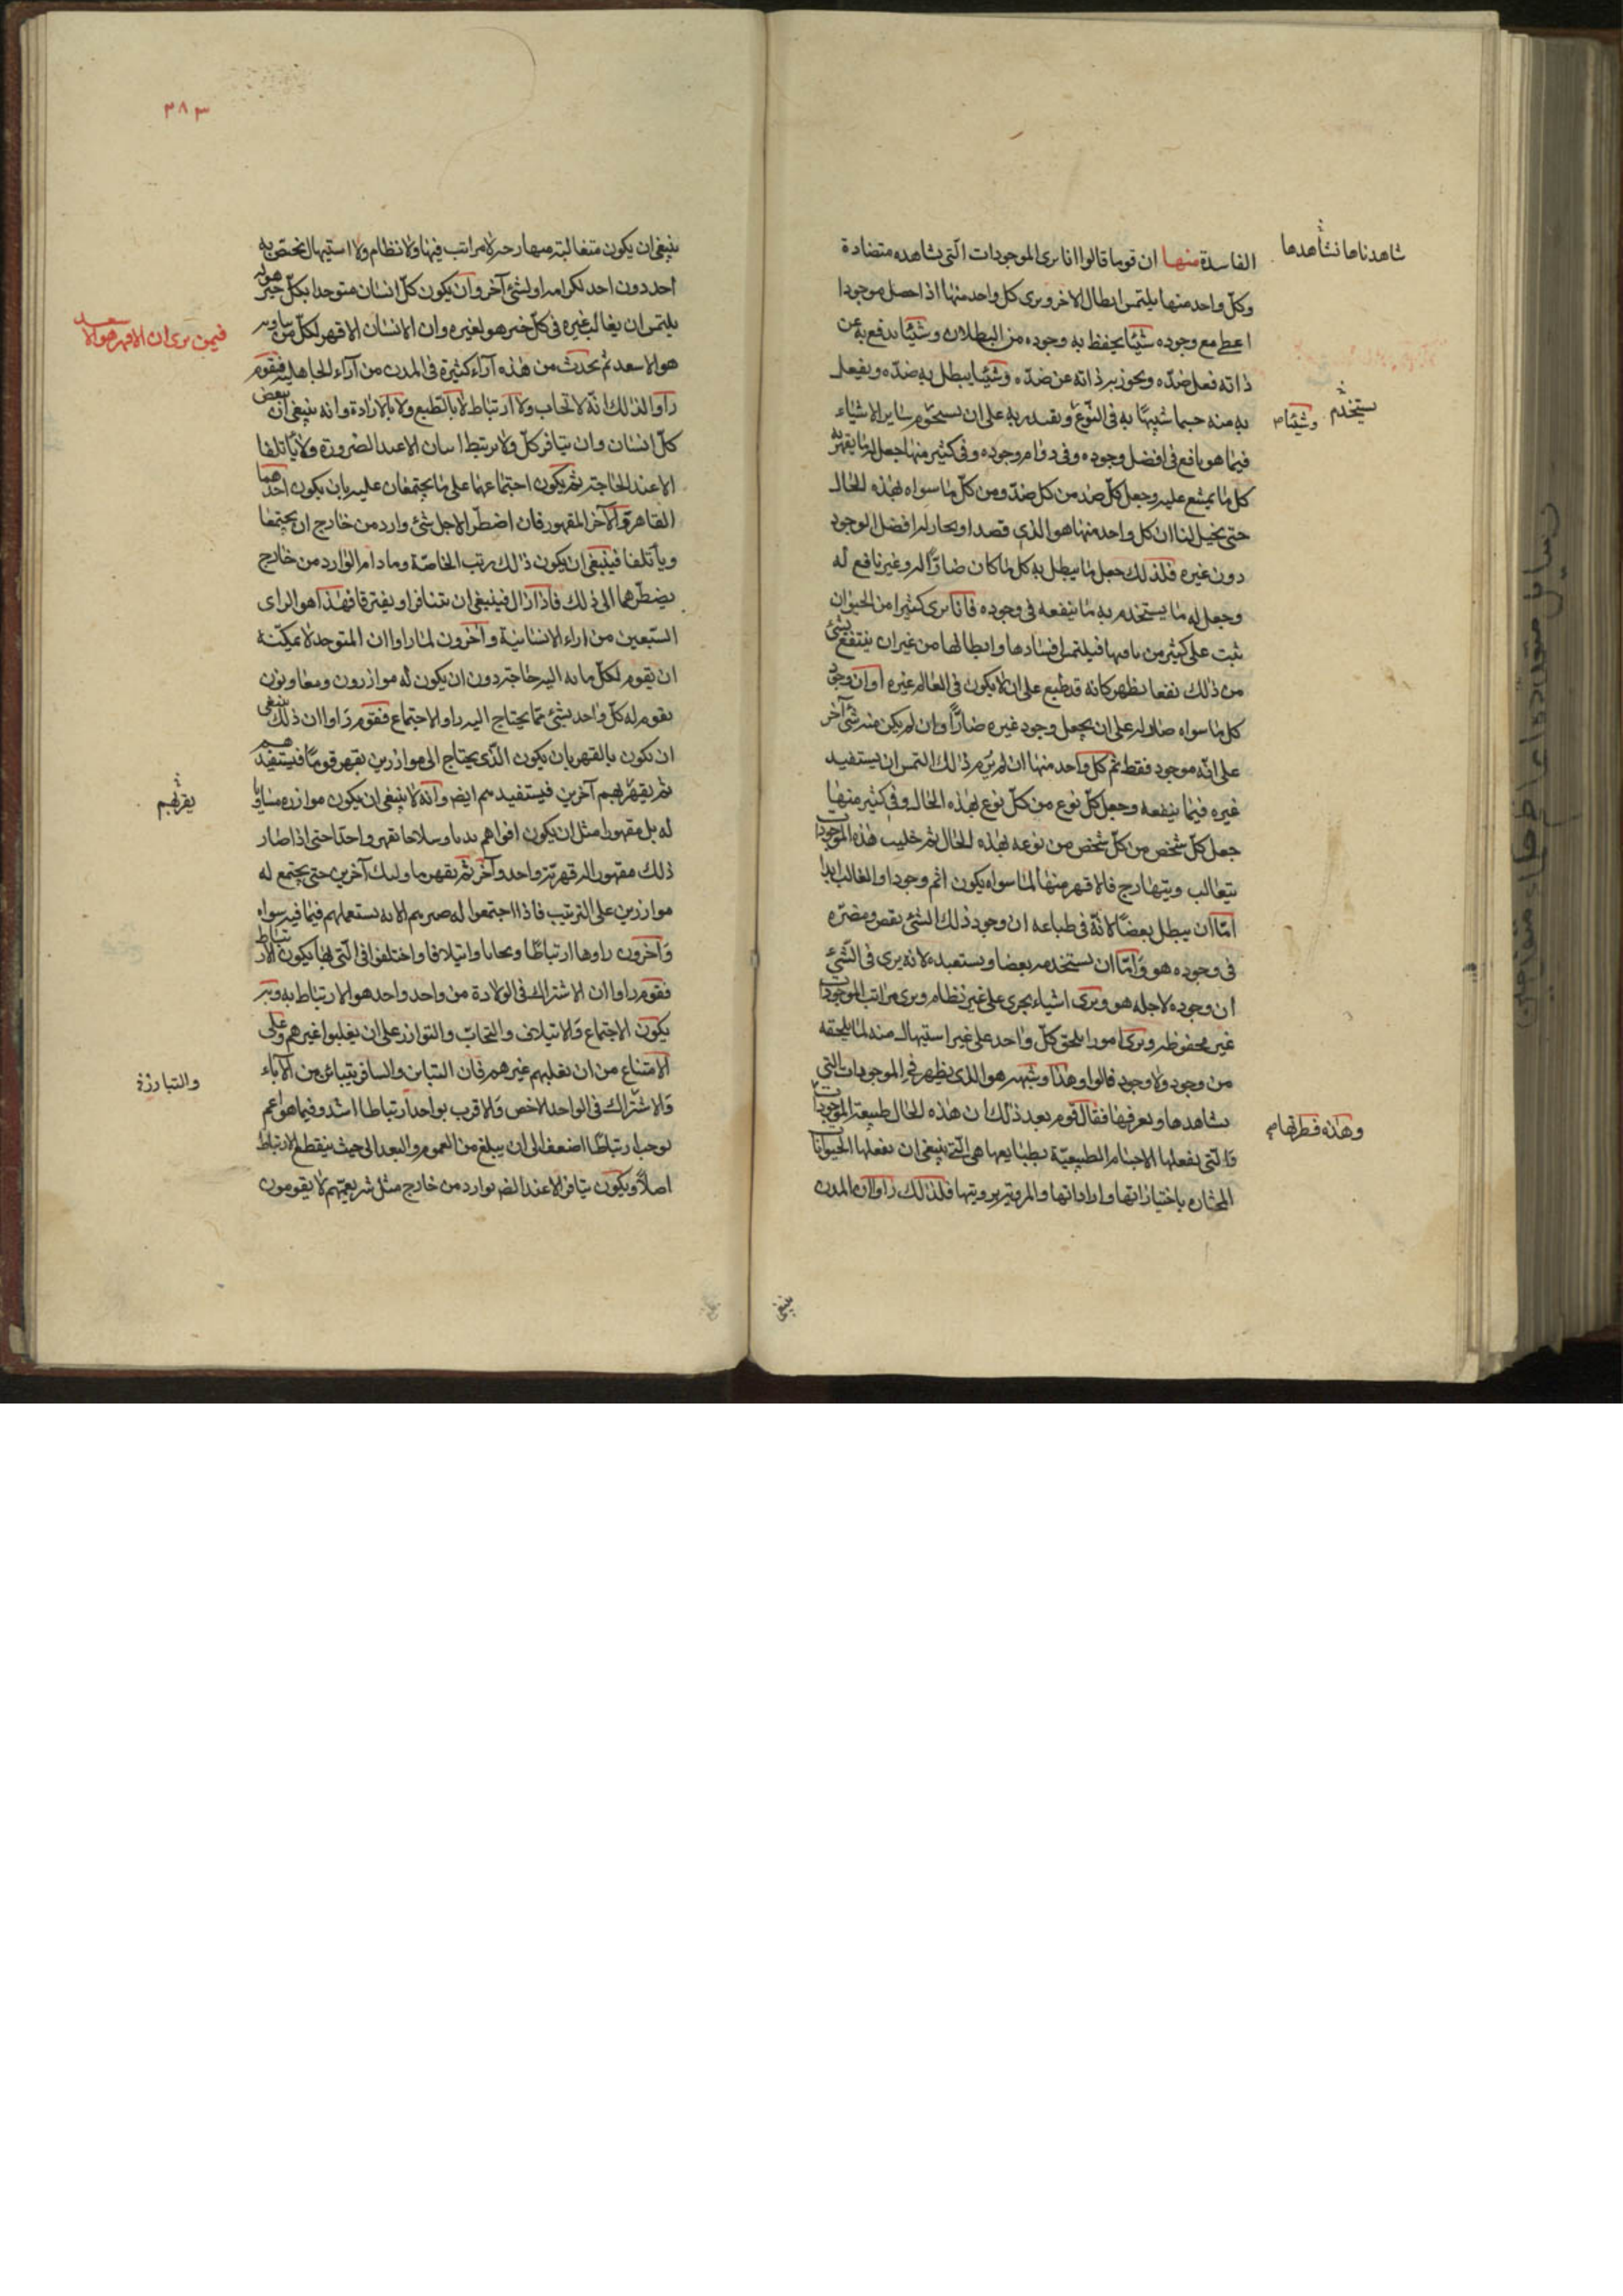 الفاسدة منها ان قوما قالوا انا نرى الموجودات الّتى نشاهده متضادة
وكلّ واحد منها يلتمس ابطال الاخر ونرى كل واحد منها اذا حصل موجودا
اعطى مع وجوده شيئا يحفظ به وجوده من البطلان وشيئا يدفع به عن
ذاته فعل ضدّه ويحوز به ذاته عن ضدّه وشيئا يبطل به ضدّه ويفعل
به منه جسما شبيهًا به فى النّوع ويقتدر به على ان يستخدم ساير الاشياء
فيما هو نافع فى افضل وجوده وفى دوام وجوده وفى كثير منها جعل له ما يقهر به
كل ما يمتنع عليه وجعل كلّ ضد من كل ضدّ ومن كلّ ما سواه بهذه الحال
حتى يخيل لنا ان كل واحد منها هو الذى قصد او يحاز له افضل الوجود
دون غيره فلذلك جعل ما يبطل به كل ما كان ضارّا له وغير نافع له
وجعل له ما يستخدم به ما ينفعه فى وجوده فانا نرى كثيرا من الحيوان
يثب على كثير من باقيها فيلتمس افسادها وابطالها من غير ان ينتفع بشئ
من ذلك نفعا يظهر كانه قد طبع على ان لا يكون فى العالم غيره او ان وجود
كل ما سواه ضار له على ان يجعل وجود غيره ضارّا وان لم يكن منه شئ آخر
على انّه موجود فقط ثم كل واحد منها ان لم يرم ذلك التمس ان يستفيد
غيره فيما ينفعه وجعل كلّ نوع من كلّ نوع بهذه الحال وفى كثير منها
جعل كلّ شخص من كلّ شخص من نوعه بهذه الحال ثم خليت هذه الموجودات
يتغالب ويتهارج فالاقهر منها لما سواه يكون اتم وجودا والغالب ابدا
امّا ان يبطل بعضًا لانّه فى طباعه ان وجود ذلك الشئ نقص ومضرّة
فى وجوده هو وامّا ان يستخدم بعضا ويستعبده لانه يرى فى الشّئ
ان وجوده لاجله هو ويرى اشياء يجرى على غير نظام ويرى مراتب الموجودات
غير محفوظه ويرى امورا يلحق كلّ واحد على غير استيهال منه لما يلحقه
من وجود ولا وجود قالوا وهذا وشبهه هو الذى يظهر فى الموجودات التى
نشاهدها ونعرفها فقال قوم بعد ذلك ان هذه الحال طبيعة الموجودات
والّتى يفعلها الاجسام الطبيعيّة بطبايعها هى الّتى ينبغى ان يفعلها الحيوانات
المختاره باختياراتها واراداتها والمرويّة برويتها فلذلك راوا ان المدن
شاهدناها نشاهدها
يستخدم
وشيئا م
وهذه فطرتها م
ينبغى
٣٨٣
ينبغى ان يكون متغالبة متهارجة لا مراتب فيها ولا نظام ولا استيهال يختص به
احد دون احد لكرامه او لشئ آخر وان يكون كلّ انسان متوحدا بكلّ خير هو له
يلتمس ان يغالب غيره فى كلّ خير هو لغيره وان الانسان الاقهر لكل من يناويه
هو الاسعد ثم يحدث من هذه آراء كثيرة فى المدن من آراء الجاهلية فقوم
راوا لذلك انّه لا تحاب ولا ارتباط لا بالطبع ولا بالارادة وانه ينبغى ان يبغض
كلّ انسان وان ينافر كلّ ولا يرتبط اسان الا عند الضرورة ولا يأتلفا
الا عند الحاجة ثم يكون اجتماعهما على ما يجتمعان عليه بان يكون احدهما
القاهر والآخر المقهور فان اضطّر الاجل شئ وارد من خارج ان يجتمعا
ويأتلفا فينبغى ان يكون ذلك ريث الحاجّة وما دام الوارد من خارج
يضطّرهما الى ذلك فاذا زال فينبغى ان يتنافرا ويفترقا فهذا هو الراى
السّبعين من اراء الانسانية وآخرون لما راوا ان المتوحد لا يمكنه
ان يقوم لكلّ ما به اليه حاجة دون ان يكون له موازرون ومعاونون
يقوم له كلّ واحد بشئ ممّا يحتاج اليه راوا الاجتماع فقوم راوا ان ذلك ينبغى
ان يكون بالقهر بان يكون الّذى يحتاج الى موازرين يقهر قوما فيستفيدهم
ثم يقهر بهم آخرين فيستفيدهم ايضا وانه لا ينبغى ان يكون موازره مساويا
له بل مقهورا مثل ان يكون اقواهم بدنا وسلاحا يقهر واحدا حتى اذا صار
ذلك مقهورا له قهر به واحد وآخر ثم يقهر باولئك آخرين حتى يجتمع له
موازرين على الترتيب فاذا اجتمعوا له صيرهم الاته يستعملهم فيما فيه هواه
وآخرون راوها ارتباطا وتحابا وايتلافا واختلفوا فى الّتى بها يكون الارتباط
فقوم راوا ان الاشتراك فى الولادة من واحد واحد هو الارتباط به وبه
يكون الاجتماع والايتلاف والتحابّ والتوازر على ان يغلبوا غيرهم وعلى
الامتناع من ان يغلبهم غيرهم فان التباين والتنافر بتباين الآباء
والاشتراك فى الواحد الاخص والاقرب يوجد ارتباطا اشد وفيما هو اعم
يوجب ارتباطًا اضعف الى ان يبلغ من العموم والبعد الى حيث ينقطع الارتباط
اصلاً ويكون تنافرا الا عند الضر بوارد من خارج مثل شر يدهمهم لا يقومون
فيمن يرى ان الاقهر هو الاسعد
يقهر بهم
والتبارزة